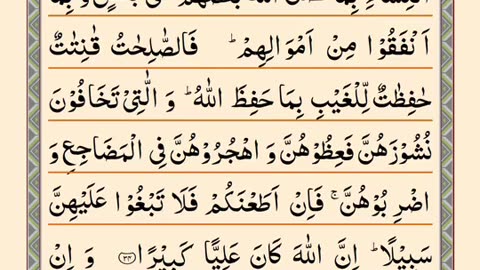 اَنْفَقُوْا مِنْ اَمْوَالِهِمْ ؕ فَالصّٰلِحٰتُ قٰنِتٰتٌ
حٰفِظٰتٌ لِّلْغَيْبِ بِمَا حَفِظَ اللّٰهُ ؕ وَ الّٰتِيْ تَخَافُوْنَ
نُشُوْزَهُنَّ فَعِظُوْهُنَّ وَ اهْجُرُوْهُنَّ فِي الْمَضَاجِعِ وَ
اضْرِبُوْهُنَّ ۚ فَاِنْ اَطَعْنَكُمْ فَلَا تَبْغُوْا عَلَيْهِنَّ
سَبِيْلًا ؕ اِنَّ اللّٰهَ كَانَ عَلِيًّا كَبِيْرًا ﴿۳۴﴾ وَ اِنْ